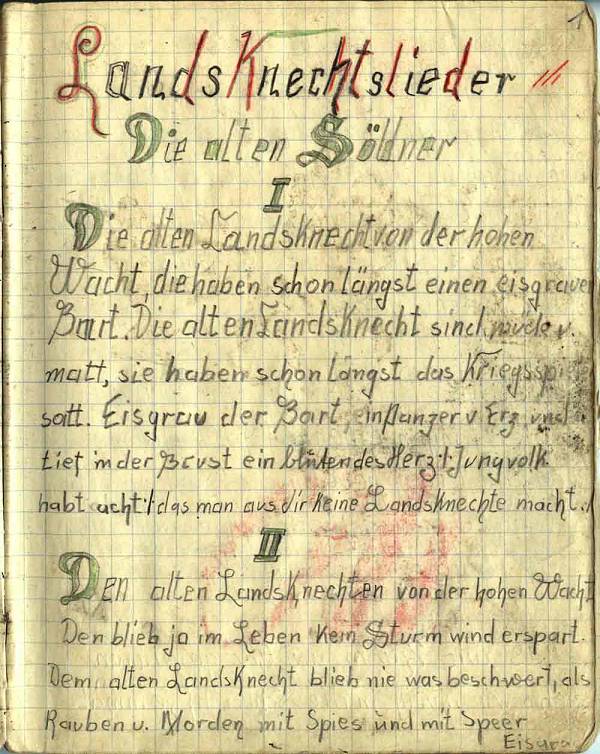 1
Landsknechtslieder
Die alten Söldner
I
Die alten Landsknecht von der hohen
Wacht, die haben schon längst einen eisgrauen
Bart. Die alten Landsknecht sind müde u.
matt, sie haben schon längst das Kriegsspiel
satt. Eisgrau der Bart, ein Panzer v. Erz und
tief in der Brust ein blutendes Herz /:Jungvolk
habt acht:/ das man aus dir keine Landsknechte macht./
II
Den alten Landsknechten von der hohen Wacht
Den blieb ja im Leben kein Sturmwind erspart.
Dem alten Landsknecht blieb nie was beschwert, als
Rauben u. Morden mit Spies und mit Speer
Eisgrau